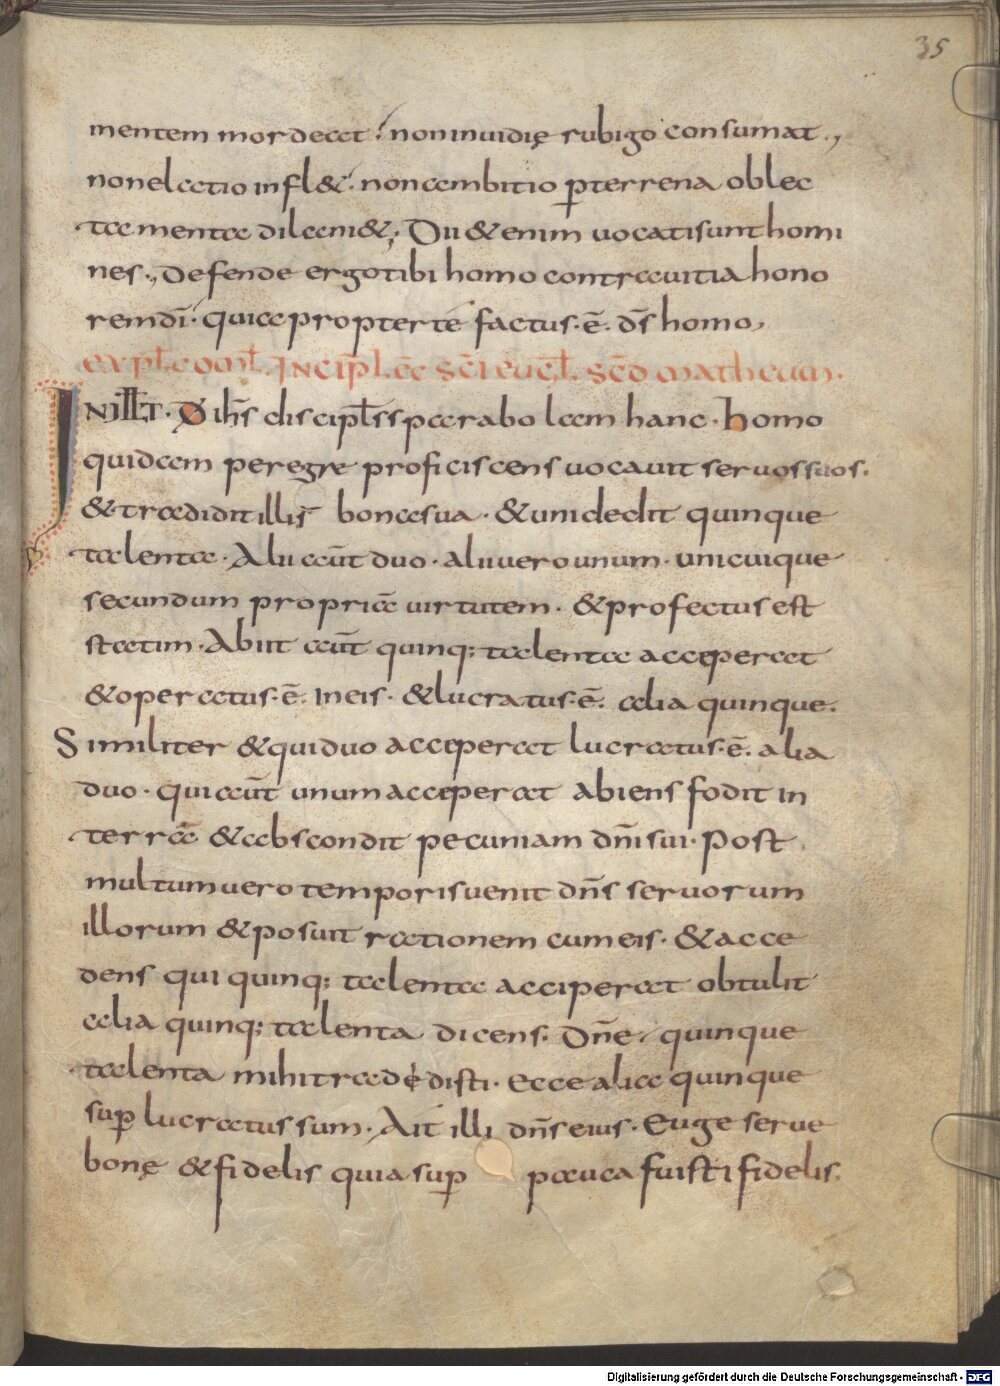 35
mentem mordeat? non inuidię rubigo consumat.,
non elatio infl&. non ambitio p̱ terrena oblec
tamenta dilani&; Dii &enim uocati sunt homi
nes., Defende ergo tibi homo contra uitia hono
rem dī. qui a propter te factus. ē. ds̄ homo,
expl̄. om̄l. Incip̄ l. ēc sc̄i euḡl. sc̄d matheum.
IN ILLT. D̄ ihs̄ discipl̄s s parabolam hanc. Homo
quidam peregre proficiscens uocauit seruos suos.
& tradidit illis bona sua. & uni dedit quinque
talenta. Alii aut̄ duo. alii uero unum. unicuique
secundum propriā uirtutem. & profectus est
statim. Abiit aut̄ quinq; talenta acceperat
& operatus. ē. in eis. & lucratus. ē. alia quinque.
Similiter & qui duo acceperat lucratus. ē. alia
duo. qui aut̄ unum acceperat abiens fodit in
terrā & abscondit pecuniam dn̄i sui. Post
multum uero temporis uenit dn̄s seruorum
illorum & posuit rationem cum eis. & acce
dens qui quinq; talenta acciperat obtulit
alia quinq; talenta dicens. Dn̄e. quinque
talenta mihi tradedisti. Ecce alia quinque
sup̱ lucratus sum. Ait illi dn̄s eius. Euge serue
bonę & fidelis quia sup̱ pauca fuisti fidelis.
Digitalisierung gefördert durch die Deutsche Forschungsgemeinschaft - DFG